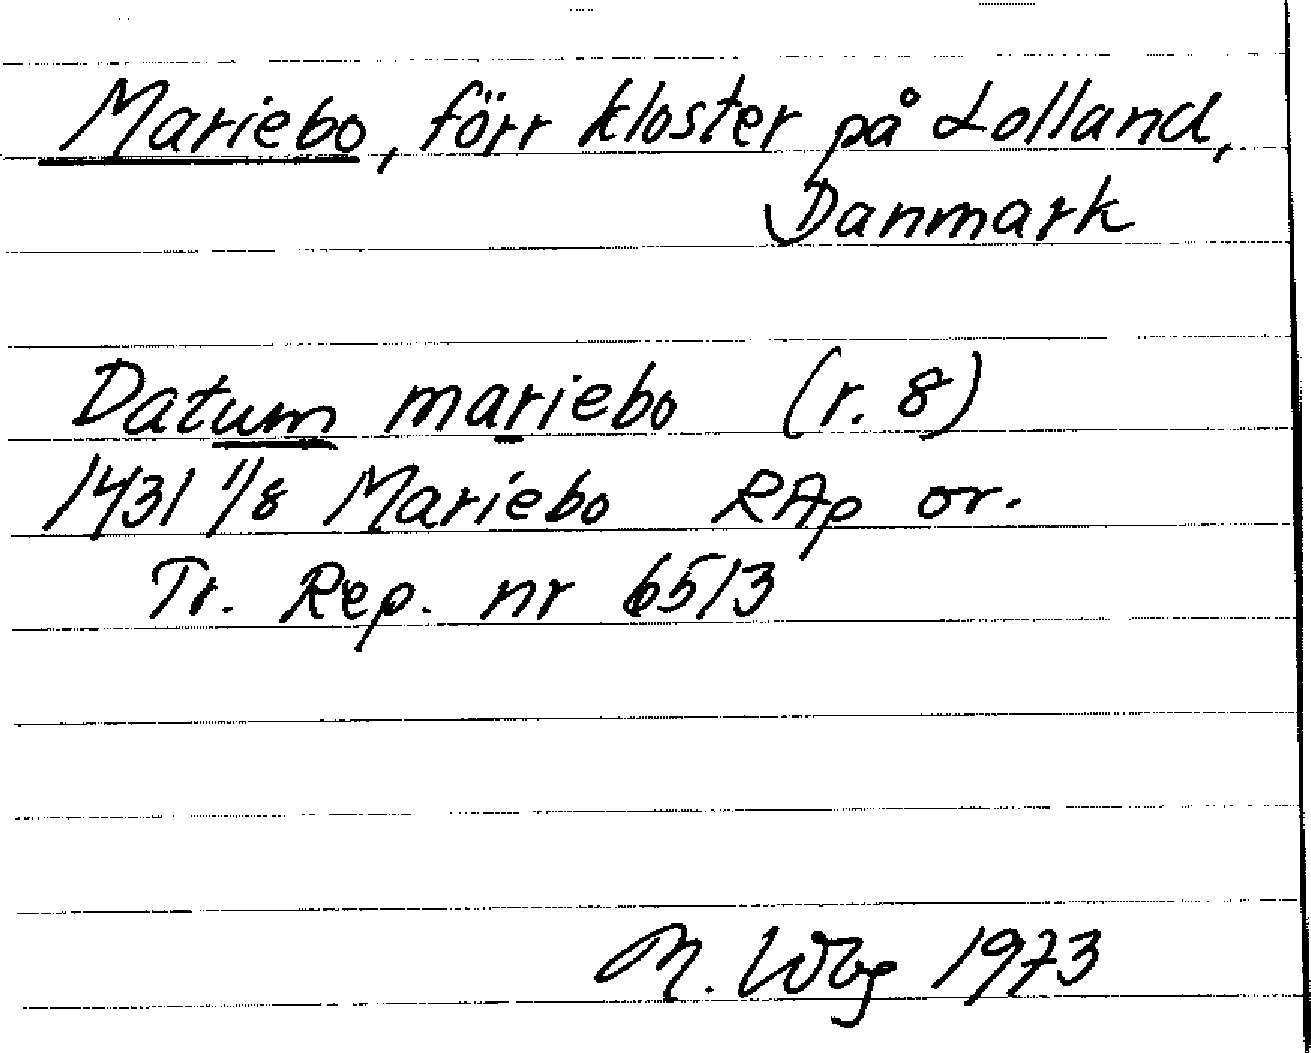 Mariebo, förr kloster på Lolland,
Danmark
Datum mariebo (r. 8)
1431 1/8 Mariebo RAp or.
Tr. Rep. nr 6513
M. Wbg 1973